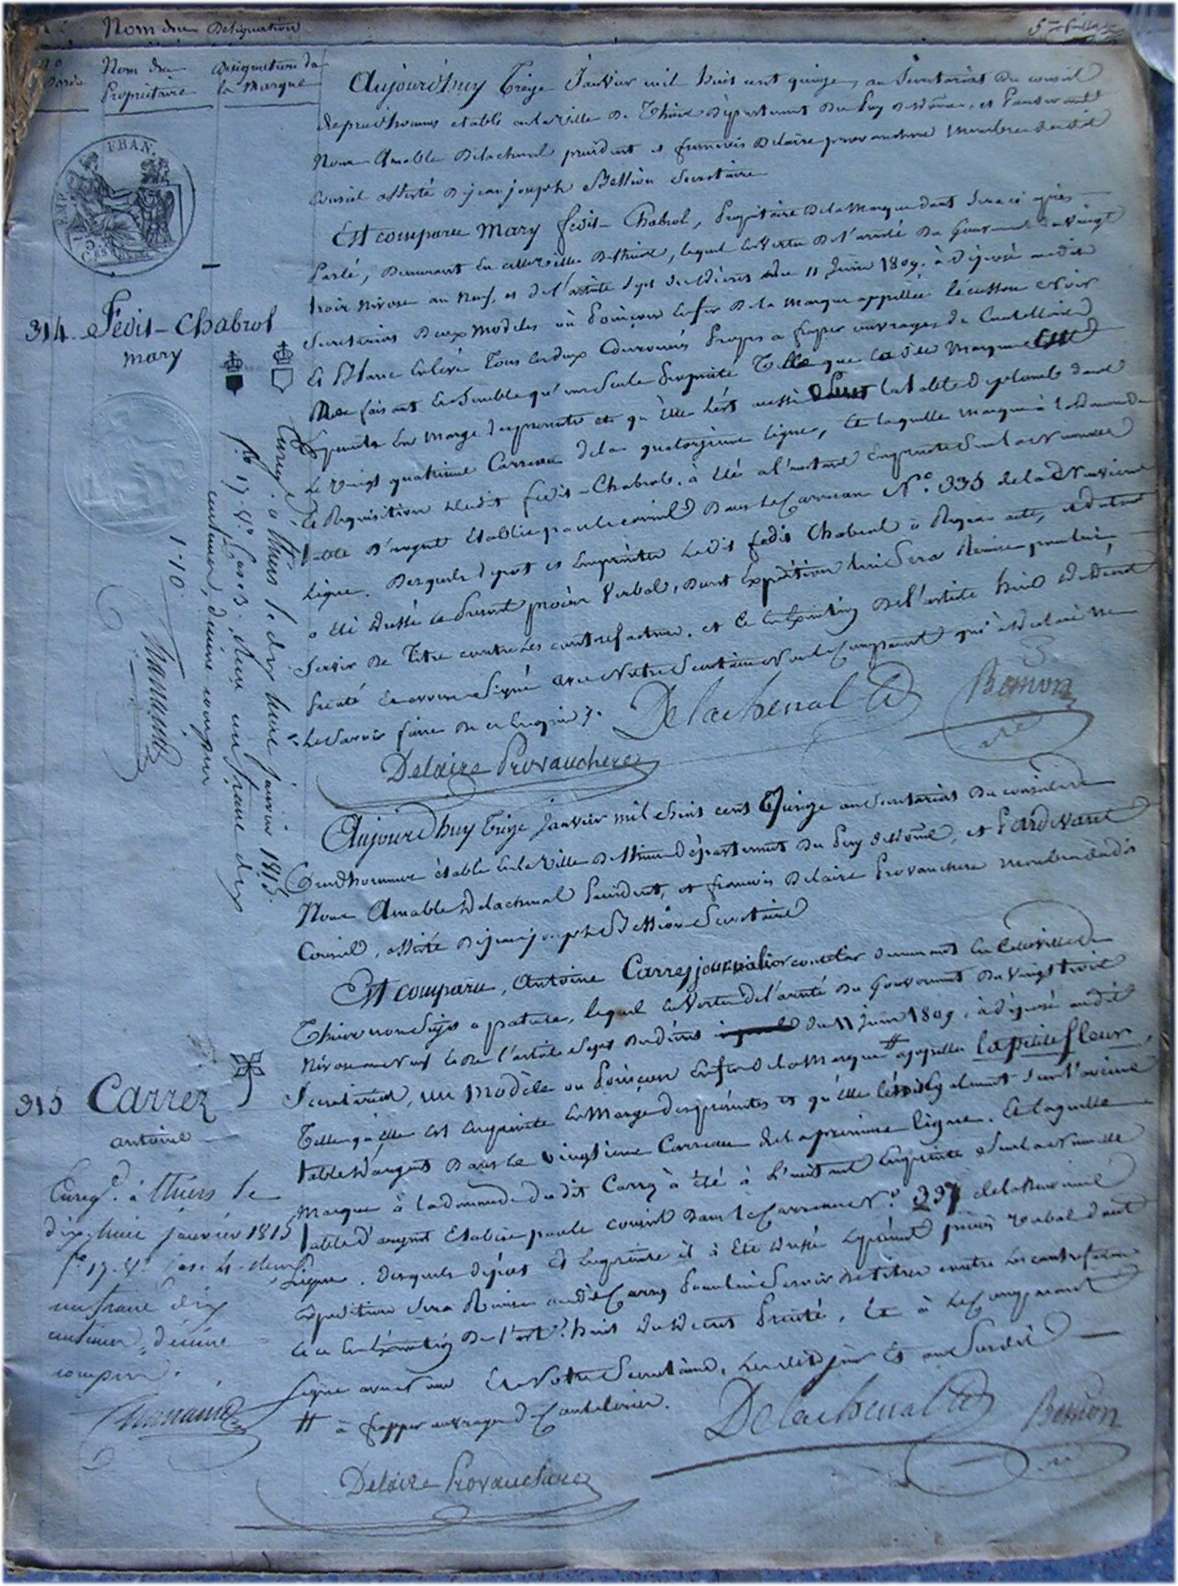 Nom du Designation
5me feuille
No d'ordre
Nom du Propriétaire
Designation de la Marque
EMP. FRAN.
Aujourd'huy Treize Janvier mil huit cent quinze, au Secretariat du conseil
de prud'hommes etabli en la ville de Thiers Département du Puy de dôme, et Pardevant
Nous Amable Delachenal président et francois Delaire provauchere Membre dudit
Conseil assisté de jean joseph Bession Secretaire
Est comparu Mary fedit-Chabrol, Propriétaire de la Marque dont Sera ci après
Parlé, Demeurant en cette ville de Thiers, lequel en Vertu de l'arrêté du Gouvernement du vingt
trois Nivose an Neuf, et de l'article Sept du décret du 11 Juin 1809. à déposé audit
Secretariat Deux Modeles ou Poinçons en fer de la Marque appellée l'écusson Noir
Et Blanc Tous les deux Couronnés Propres a frapper ouvrages de Coutellerie
Ne faisant Ensemble qu'une Seule Propriété Telle que la dite Marque Est
Empreinte En Marge des présentes et qu'Elle l'est aussi Sur la table déposée dans
le Vingt quatrieme Carreau de la quatorzieme ligne, Et laquelle Marque à la demande
Et Requisition dudit fedit-Chabrol, à été a l'instant Empreinte Sur la Nouvelle
table d'argent Etablie par le conseil Dans le Carreau No. 335 de la Neuvieme
Ligne. Desquels dépot et Empreinte ledit fedit Chabrol à Requis acte, et du tout
a été dressé le Present procès Verbal, dont Expédition lui Sera Remise pour lui
Servir de Titre contre les contrefacteurs, et Ce en Exécution de l'article huit dudit Décret
Précité Et avons Signé avec Notre Secretaire Non le Comparant qui à declaré ne
le Savoir faire de ce Enquis.
Delachenal
Bession
Delaire Provauchere
314. Fedit-Chabrol
mary
Enreg. à thiers le dix huit janvier 1815.
fo. 17. Vo. Case 3. Reçu un franc dix
centimes, décime compris
1-10
Aujourd'huy Treize Janvier mil huit cent Quinze au Secretariat du conseil de
Prudhommes établi en la Ville de Thiers Département du Puy de dôme, et Pardevant
Nous Amable Delachenal Président, et francois Delaire Provauchere membre dudit
Conseil, assisté de jean joseph Bession Secretaire
Est comparu, Antoine Carrez journalier coutelier demeurant en cette ville de
Thiers, lequel en Vertu de l'arrêté du Gouvernement du vingt trois
Nivose an Neuf et de l'article Sept du décret du 11 Juin 1809, à déposé audit
Secretariat, un Modèle ou Poinçon en fer de la Marque # appellée la petite fleur,
Telle qu'elle est Empreinte En Marge des présentes et qu'Elle l'est Egalement Sur l'ancienne
table d'argent Dans le Vingtieme Carreau de la premiere ligne. Et laquelle
Marque à la demande dudit Carrez à été à L'instant Empreinte Sur la Nouvelle
table d'argent Etablie par le conseil Dans le Carreau No. 337 de la Neuvieme
Ligne. desquels dépot Et Empreinte il à Eté dressé le présent procès Verbal dont
Expedition Sera Remise audit Carrez Pour lui Servir de titre contre les contrefacteurs
Et ce en Exécution de l'art. huit du Décret Précité, Et à le Comparant
Signé avec nous Et Notre Secretaire, les dits jour Et an Susdit
# à frapper ouvrages de Coutellerie.
Delachenal
Bession
Delaire Provauchere
315 Carrez
antoine
Enreg. à thiers le
dix huit janvier 1815
fo. 17. Vo. Case 4.
un franc dix
centimes, décime
compris.